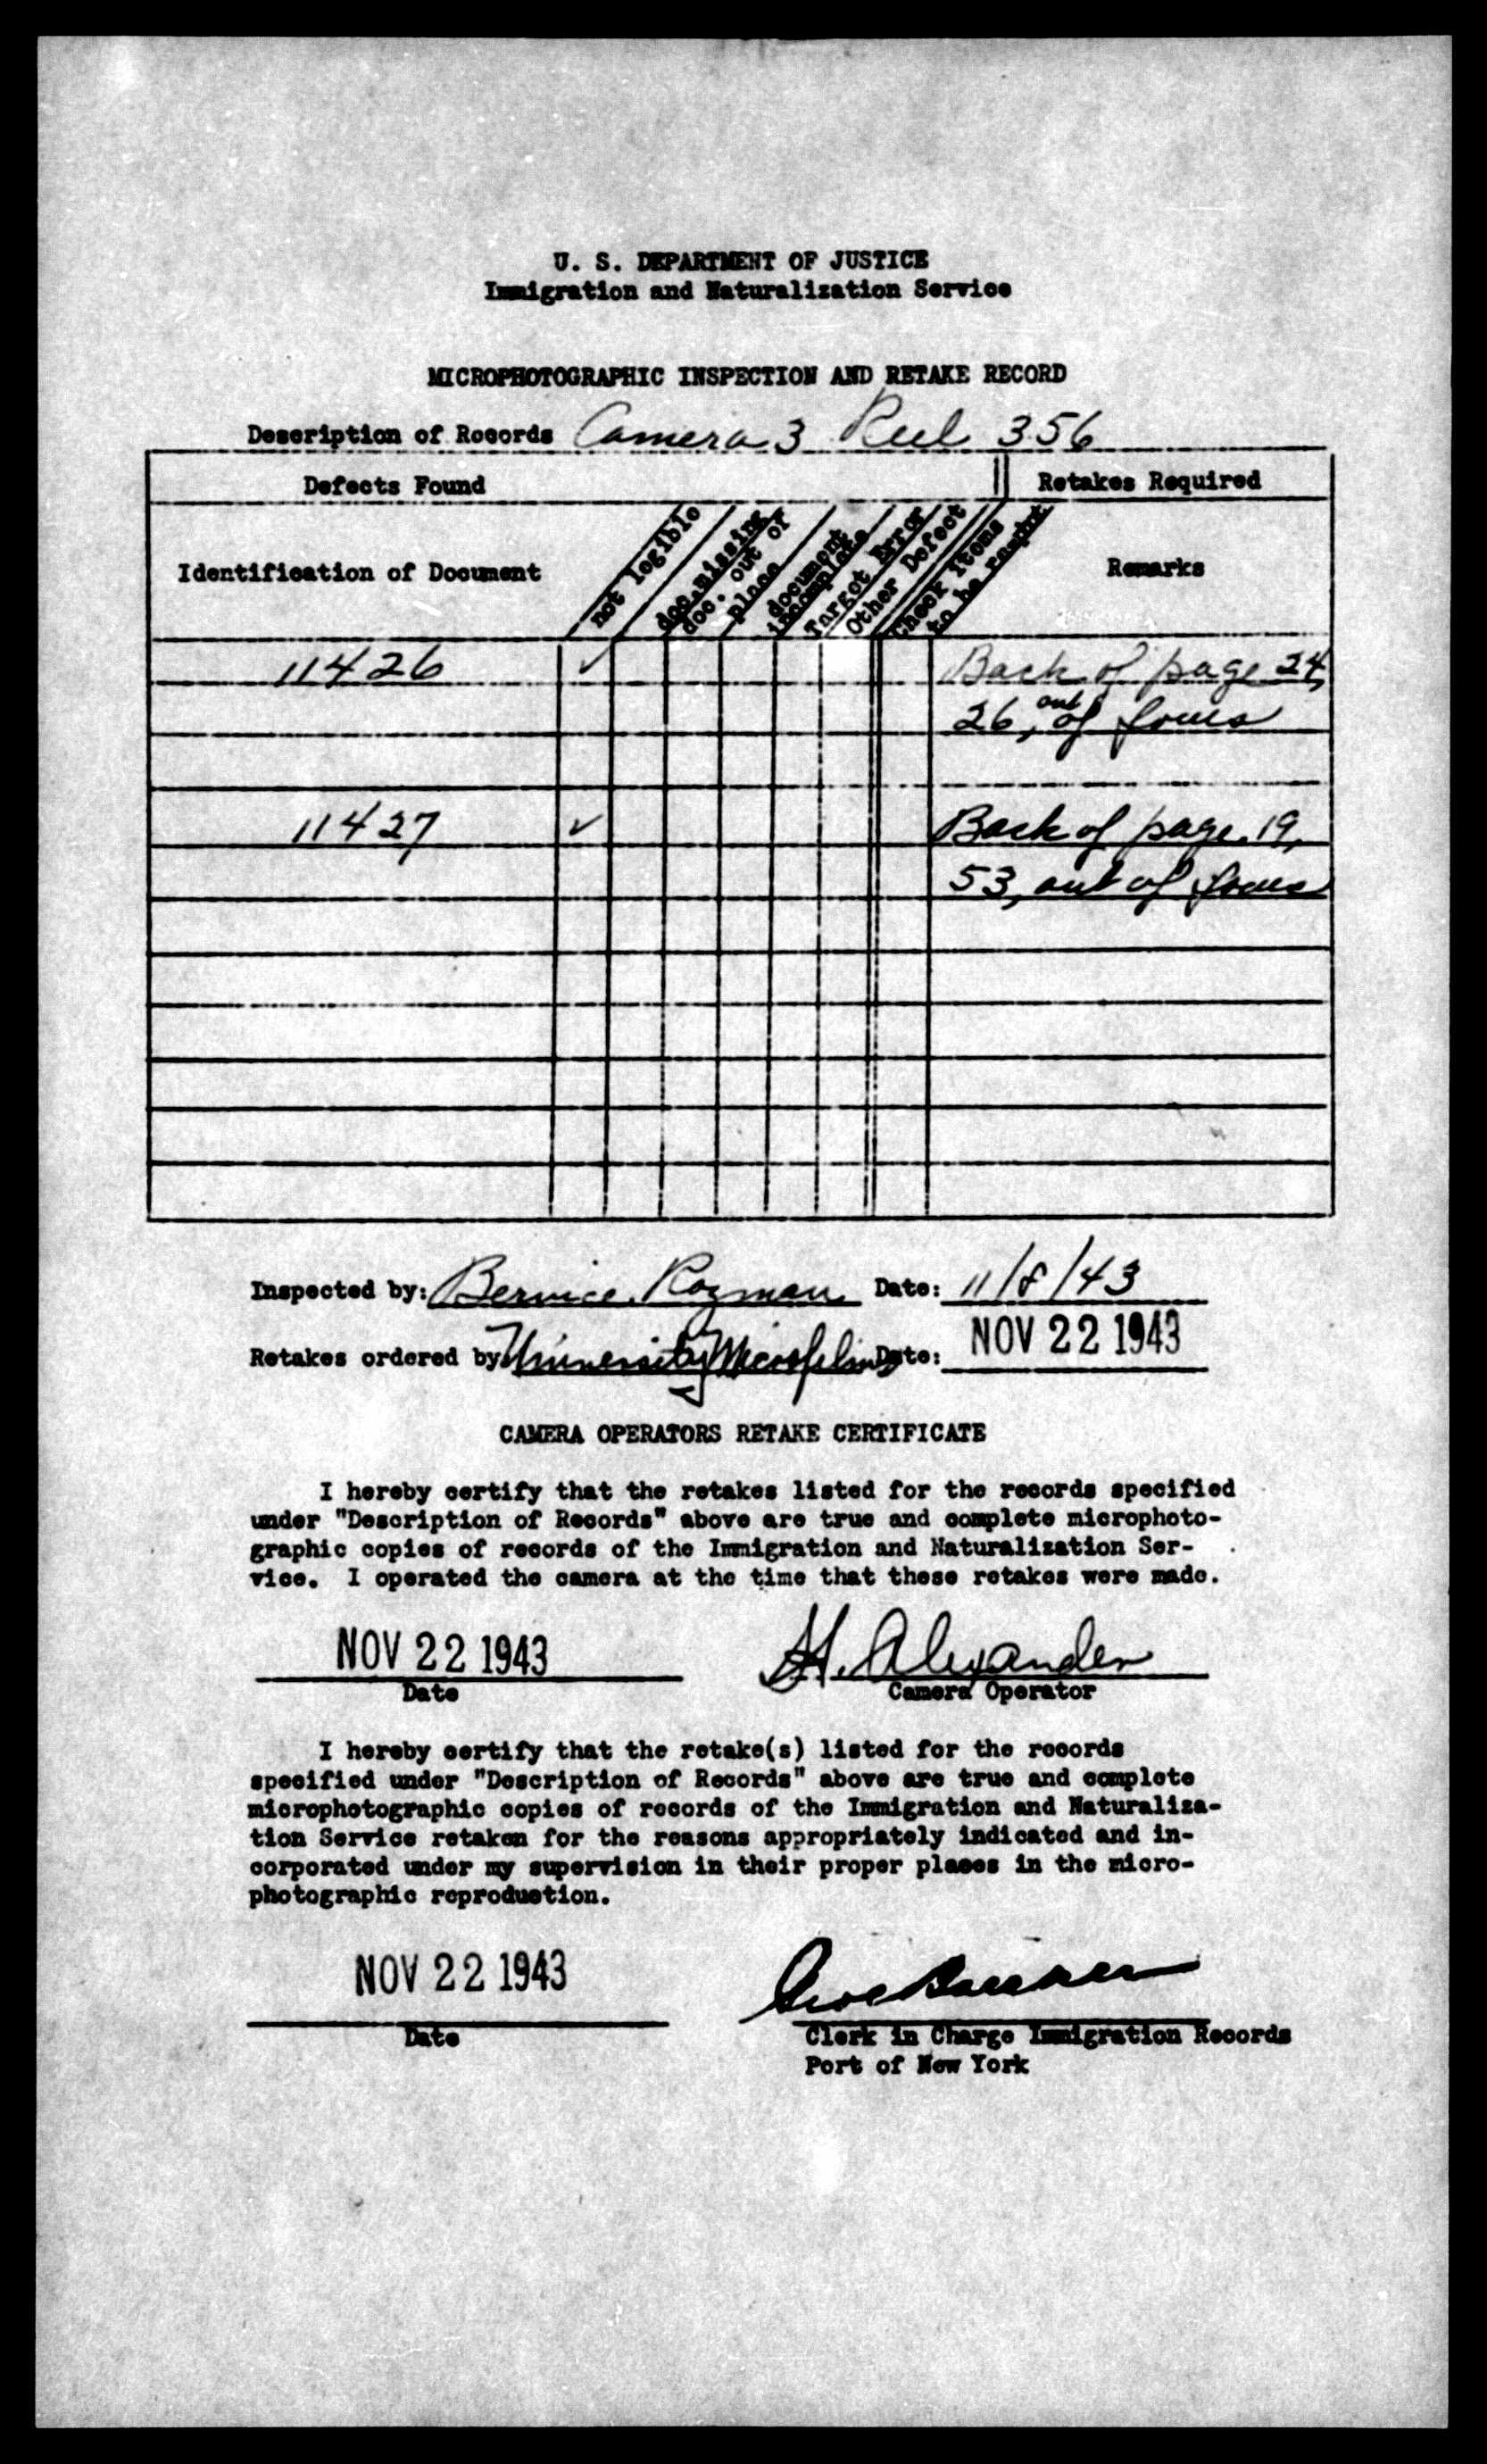 U. S. DEPARTMENT OF JUSTICE
Immigration and Naturalization Service
MICROPHOTOGRAPHIC INSPECTION AND RETAKE RECORD
Description of Records Camera 3 Reel 356
Defects Found
Retakes Required
Identification of Document
not legible
doc. missing
doc. out of
place
document
incomplete
Target Error
Other Defect
Check items
to be
Remarks
11426 ✓ Back of page 24,
26, out of focus
11427 ✓ Back of page 19,
53, out of focus
Inspected by: Bernice Rozman Date: 11/8/43
Retakes ordered by University Microfilms Date: NOV 22 1943
CAMERA OPERATORS RETAKE CERTIFICATE
I hereby certify that the retakes listed for the records specified
under "Description of Records" above are true and complete microphoto-
graphic copies of records of the Immigration and Naturalization Ser-
vice. I operated the camera at the time that these retakes were made.
NOV 22 1943 H. Alexander
Date Camera Operator
I hereby certify that the retake(s) listed for the records
specified under "Description of Records" above are true and complete
microphotographic copies of records of the Immigration and Naturaliza-
tion Service retaken for the reasons appropriately indicated and in-
corporated under my supervision in their proper places in the micro-
photographic reproduction.
NOV 22 1943
Date
Clerk in Charge Immigration Records
Port of New York